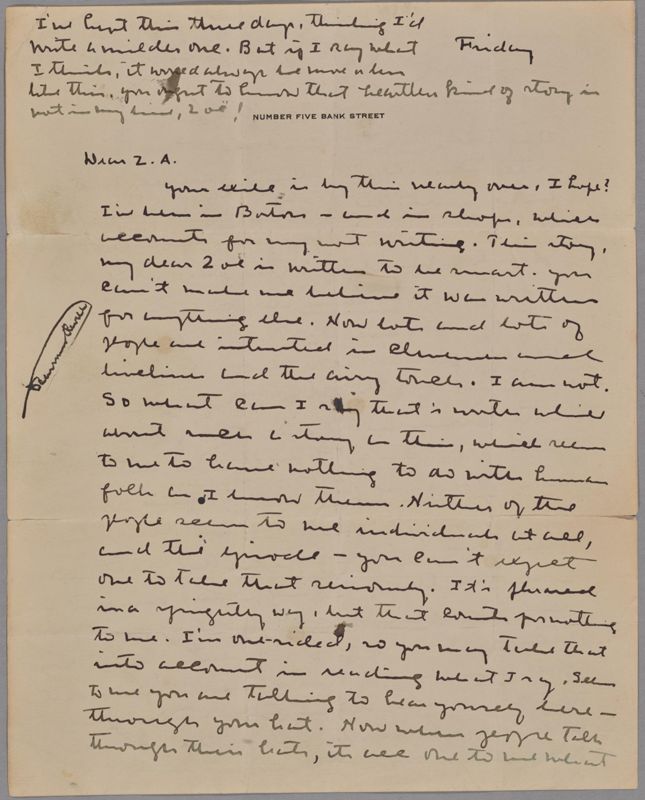 I've kept this three days, thinking I'd
write a milder one. But if I say what
Friday
I think, it would always be more or less
like this. You ought to know that heartless kind of story is
not in my line, Zoë!
NUMBER FIVE BANK STREET
Dear Z. A.
Your exile is by this nearly over, I hope?
I've been in Boston — and in shops, which
accounts for my not writing. This story,
my dear Zoë is written to be smart. You
can't make me believe it was written
for anything else. Now lots and lots of
people are interested in cleverness and
liveliness and the airy touch. I am not.
So what can I say that's worth while
about such a story as this, which seems
to me to have nothing to do with human
folk as I know them. Neither of the
people seem to me individuals at all,
and the episode — you can't expect
one to take that seriously. It's phrased
in a sprightly way, but that counts for nothing
to me. I'm one-sided, so you may take that
into account in reading what I say. Seems
to me you are talking to hear yourself here —
through your hat. Now when people talk
through their hats, its all one to me what